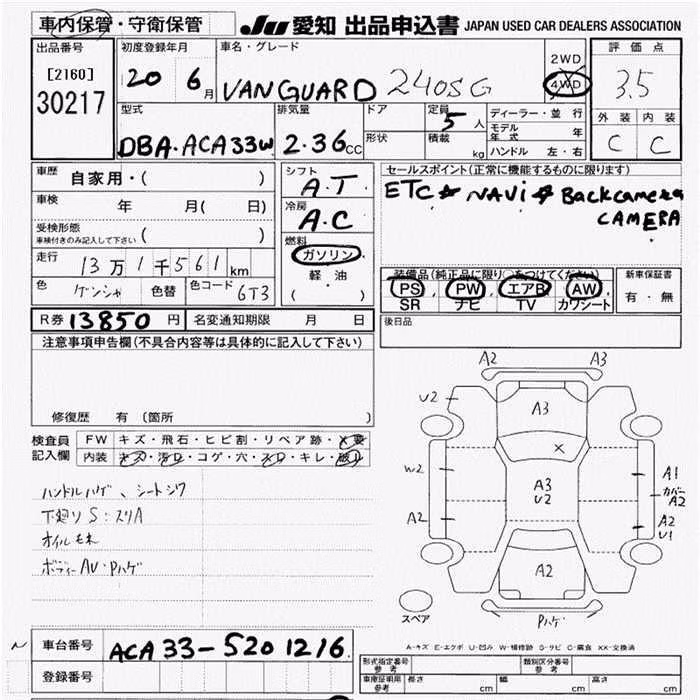 車内保管・守衛保管
JU 愛知 出品申込書 JAPAN USED CAR DEALERS ASSOCIATION
出品番号 初度登録年月 車名・グレード 評価点
[2160]
30217
20 6月
VANGUARD 240SG
2WD
4WD
3.5
外装 内装
C C
型式 排気量 ドア 定員 ディーラー・並行
DBA・ACA33W 2.36CC
形状 5人
積載 kg
モデル年式 年
ハンドル 左・右
車歴 自家用・( )
シフト A.T
セールスポイント(正常に機能するものに限ります)
ETC NAVi Backcamera
CAMERA
車検 年 月( 日)
冷房 A.C
受検形態
車検付きのみ記入して下さい ( )
燃料
ガソリン
軽・油
( )
走行 13万1千561km
色 色替 色コード 6T3
装備品(純正品に限り○をつけてください) 新車保証書
PS PW エアB AW 有・無
SR ナビ TV カワシート
R券 13850円 名変通知期限 月 日
後日品
注意事項申告欄(不具合内容等は具体的に記入して下さい)
修復歴 有(箇所 )
検査員 FW キズ・飛石・ヒビ割・リペア跡・X要
記入欄 内装 キズ・汚れ・コゲ・穴・スレ・キレ・破れ
ハンドルハゲ、シートシワ
下廻りS:スリA
オイルモレ
ボディーAV・Pハゲ
A2 A3
U2
A3
W2
A3
U2
A1
カバーA2
A2
A2
U1
A2
スペア
Pハゲ
A-キズ E-エクボ U-凹み W-補修跡 S-サビ C-腐食 XX-交換済
車台番号 ACA33-5201216
登録番号
型式指定番号 参考 類別区分番号 参考
車検証記載 参考 長さ cm 幅 cm 高さ cm